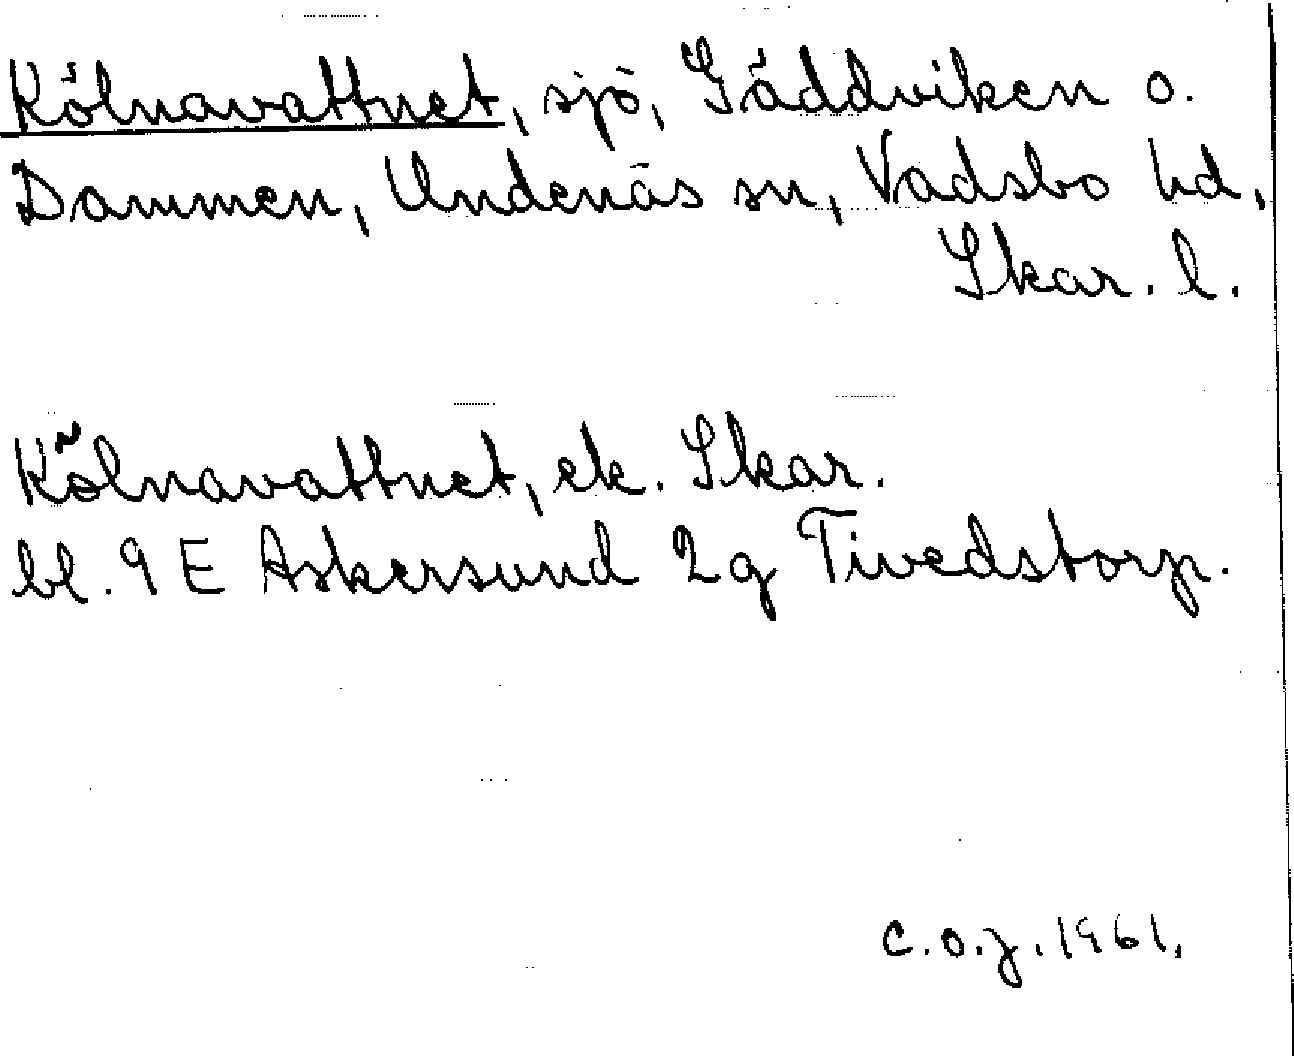 Kölnavattnet, sjö, Gäddviken o.
Dammen, Undenäs sn, Vadsbo hd,
Skar. l.
Kölnavattnet, ek. Skar.
bl. 9 E Askersund 2g Tivedstorp.
C.O.J. 1961.